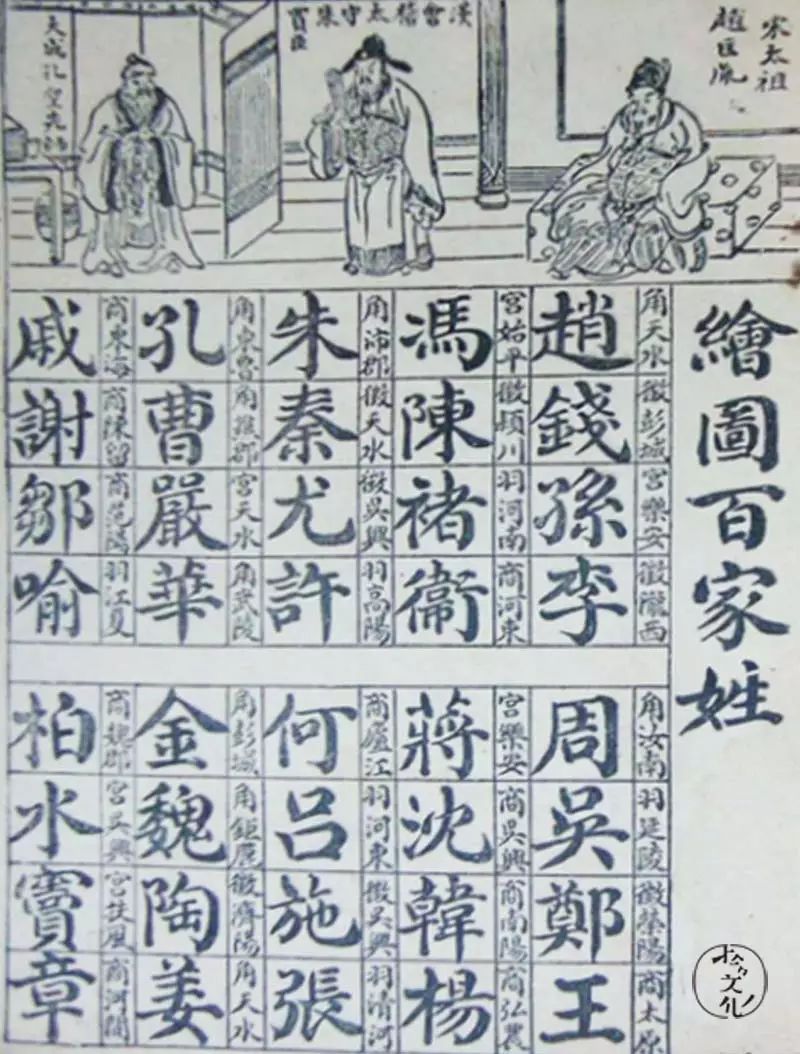 宋太祖
趙匡胤
漢會稽太守朱
買臣
大成孔聖
繪圖百家姓
角天水 徵彭城 宮樂安 徵隴西
趙錢孫李
宮始平 徵潁川 羽河南 商河東
馮陳褚衛
角沛郡 徵天水 徵吳興 羽高陽
朱秦尤許
角東魯 角譙郡 宮天水 角武陵
孔曹嚴華
商東海 商陳留 商范陽 羽江夏
戚謝鄒喻
角汝南 羽延陵 徵滎陽 商太原
周吳鄭王
宮樂安 商吳興 商南陽 商弘農
蔣沈韓楊
商廬江 羽河東 徵吳興 羽清河
何呂施張
角彭城 角鉅鹿 徵濟陽 角天水
金魏陶姜
商魏郡 宮吳興 宮扶風 商河間
柏水竇章
文化